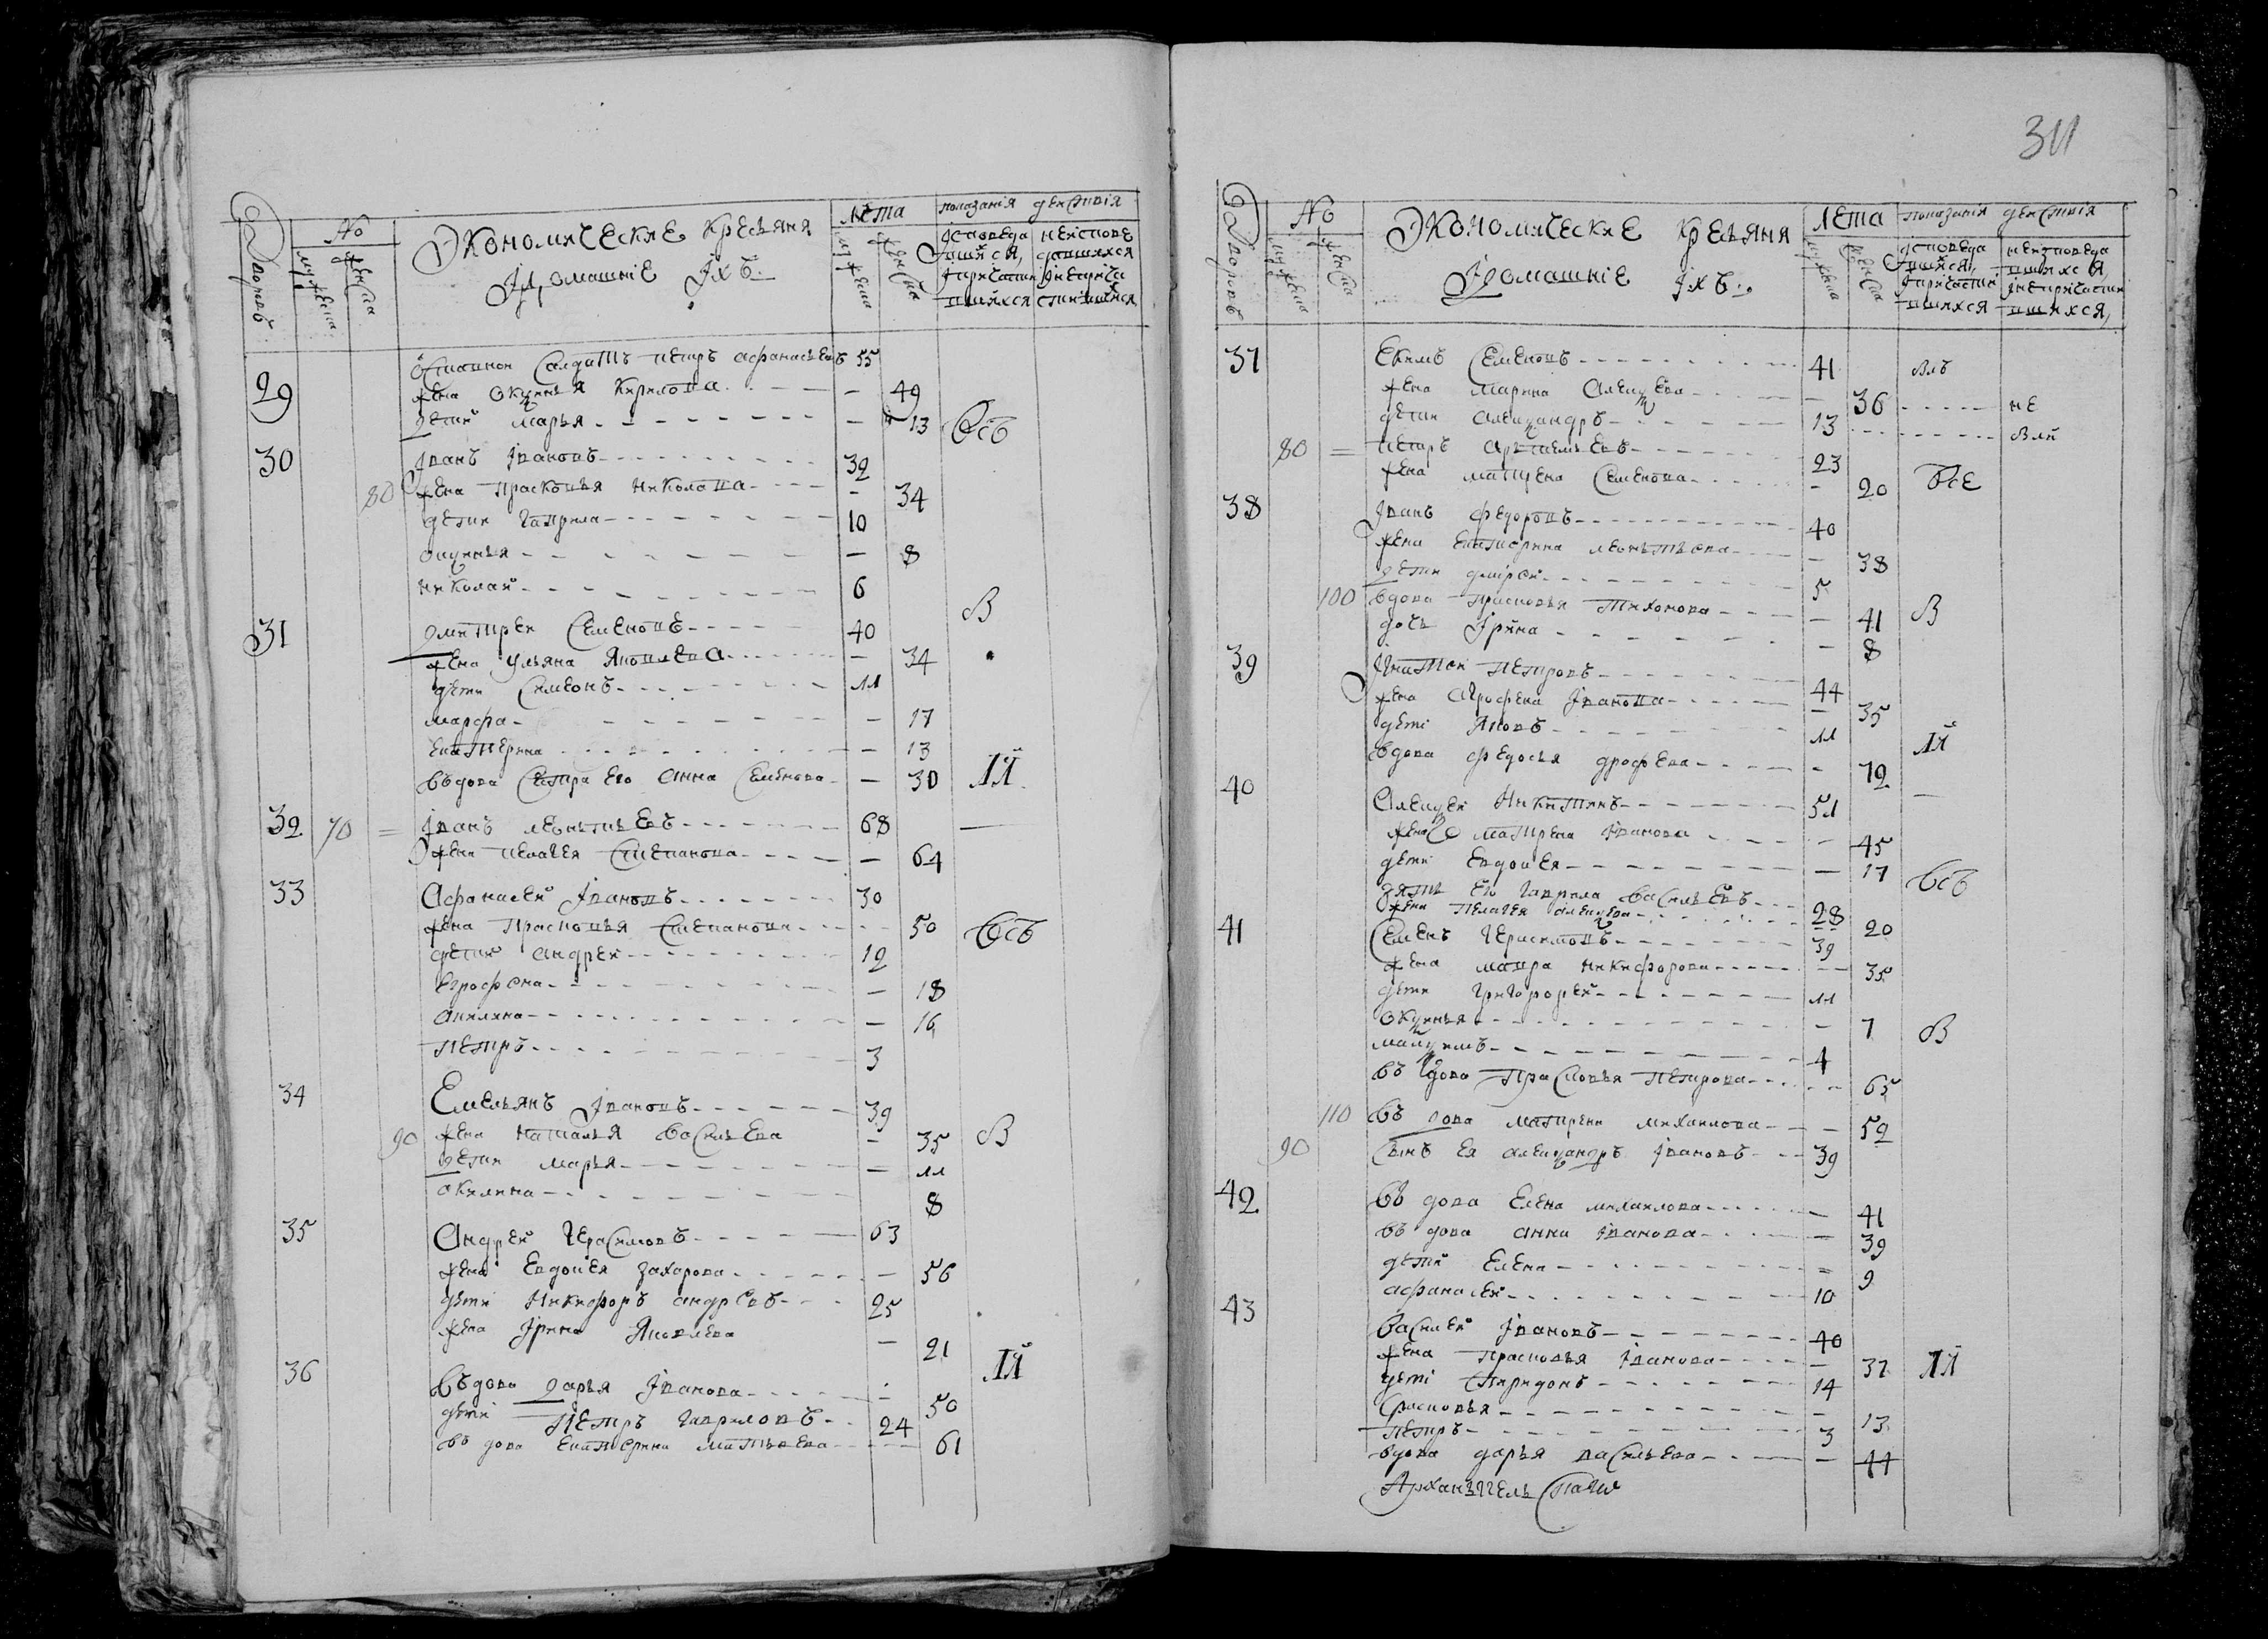 Дворовъ № мужеска женска Экономические кресьяня Ідомашніе Іхъ Лета мужеска женска показанія действія
Ісповеда вшияся, Іпричасти вшияхся неиспове давшияхся Інепричастившияхся
отставной Салдатъ петръ афанасьевъ 55
29 жена окулинья Кирилова - 49
дети марья - 13 Всъ
30 Іванъ Івановъ 32
80 жена прасковья николаева - 34
дети гаврила 10
- 8
николай 6 В
31 дмитрей Семеновъ 40
жена ульяна Яковлева - 34
дети Симеонъ 11
марфа - 17
екатерина - 13
въдова Сестра его анна Семенова - 30 ІЙ
32 70 = Іванъ леонтьевъ 68 —
жена пелагея Степанова - 64
33 Афанасей Івановъ 30
жена прасковья Степанова 50 Всъ
дети андрей 12
- 18
акилина - 16
петръ 3
34 Емельянъ Івановъ 39
90 жена наталья васильева - 35 В
дети марья - 11
окилина 8
35 Андрей Герасимовъ 63
жена Евдокея захарова - 56
дети Никифоръ андревъ 25
жена Ірина Яковлева - 21 ІЙ
36 въдова дарья Іванова - 50
дети петръ гавриловъ 24
въдова екатерина матвеева - 61
311
Дворовъ № мужеска женска Экономические кресьяня Ідомашніе Іхъ Лета мужеска женска показанія действія
Ісповеда вшияся, Іпричасти вшияхся неисповеда вшияхся, Інепричасти вшияхся,
37 Екимъ Семеновъ 41
жена марина Алексеева - 36 не
дети александръ 13
80 = петръ артемьевъ 23
жена матрена Семенова - 20 Все
38 Іванъ федоровъ 40
жена екатерина леонтьева - 38
дети 5
100 вдова прасковья тихонова - 41 В
дочь Ірина - 8
39 Игнатей петровъ 44
жена агрофена Іванова - 35
дети Яковъ 11 ІЙ
вдова федосья дрофева - 72
40 Алексей Никитинъ 51 —
жена матрена Іванова - 45
дети Евдокея - 17 Всъ
зять его гаврила васильевъ 28
жена пелагея алексеева 20
41 Семенъ герасимовъ 39
жена мавра никифорова - 35
дети григорорей 11
окулинья - 7 В
максимъ 4
въдова прасковья петрова - 65
110 въдова матрена михаилова - 52
90 сынъ ея александръ Івановъ 39
42 въдова Елена михаилова - 41
въдова анна Іванова - 39
дети елена - 9
афанасей 10
43 василей Івановъ 40
жена прасковья Іванова - 37 ІЙ
дети спиридонъ 14
прасковья - 13
петръ 3
вдова дарья васильева - 44